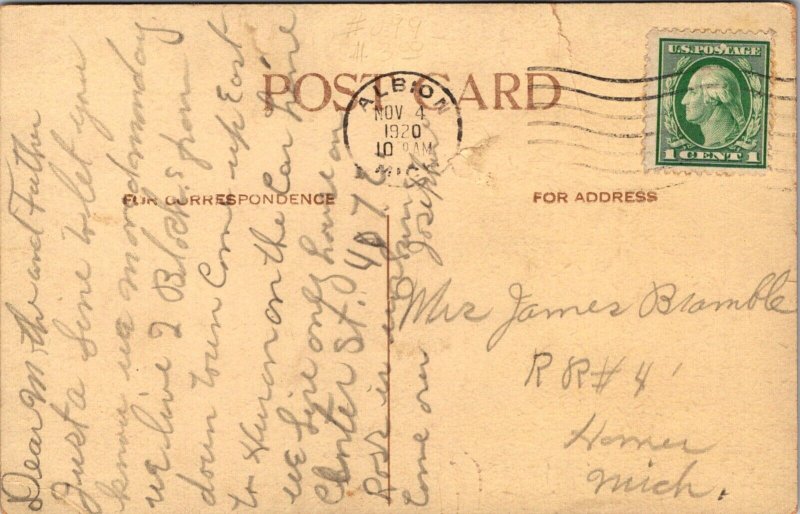 POST CARD
ALBION
NOV 4
1920
10 AM
MICH
U.S. POSTAGE
1 CENT 1
FOR CORRESPONDENCE
FOR ADDRESS
Dear Mother and Father
Just a line to let you
know we moved monday
we live 2 Blocks from
down town Come up East
to Huron on the Car line
we live only house on
St. 407
Ross is working
Come over
Joseph
Mrs James Bramble
RR#4
Homer
Mich.